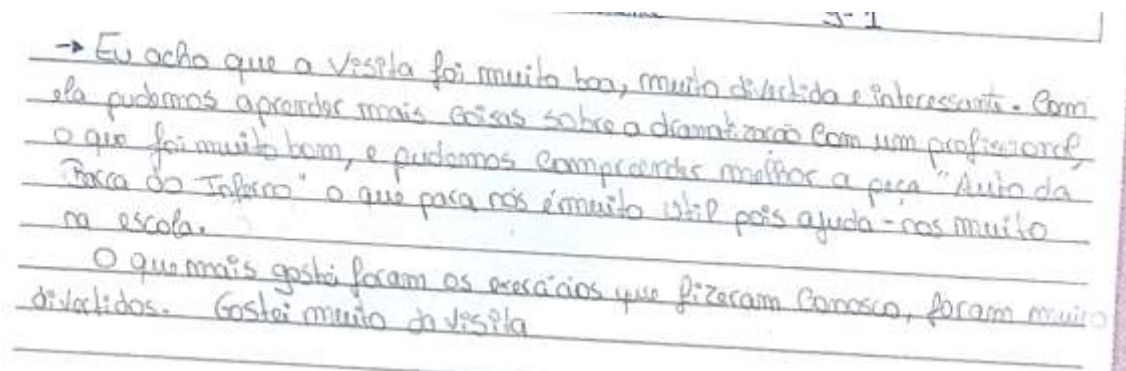 9-1
→ Eu acho que a visita foi muito boa, muito divertida e interessante. Com
ela pudemos aprender mais coisas sobre a dramatização com um profissional,
o que foi muito bom, e pudemos compreender melhor a peça "Auto da
Barca do Inferno" o que para nós é muito útil pois ajuda-nos muito
na escola.
O que mais gostei foram os exercícios que fizeram conosco, foram muito
divertidos. Gostei muito da visita